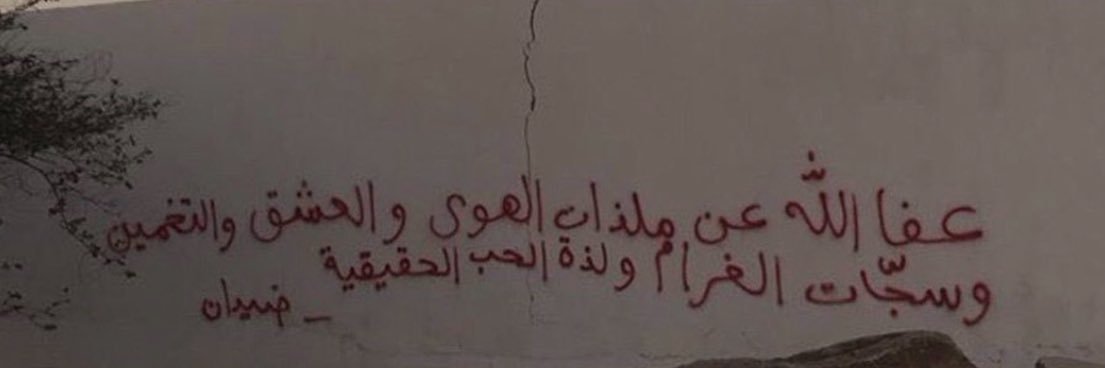 عفا الله عن ملذات الهوى والعشق والتغمين
وسجّات الغرام ولذة الحب الحقيقية
_ ضيدان